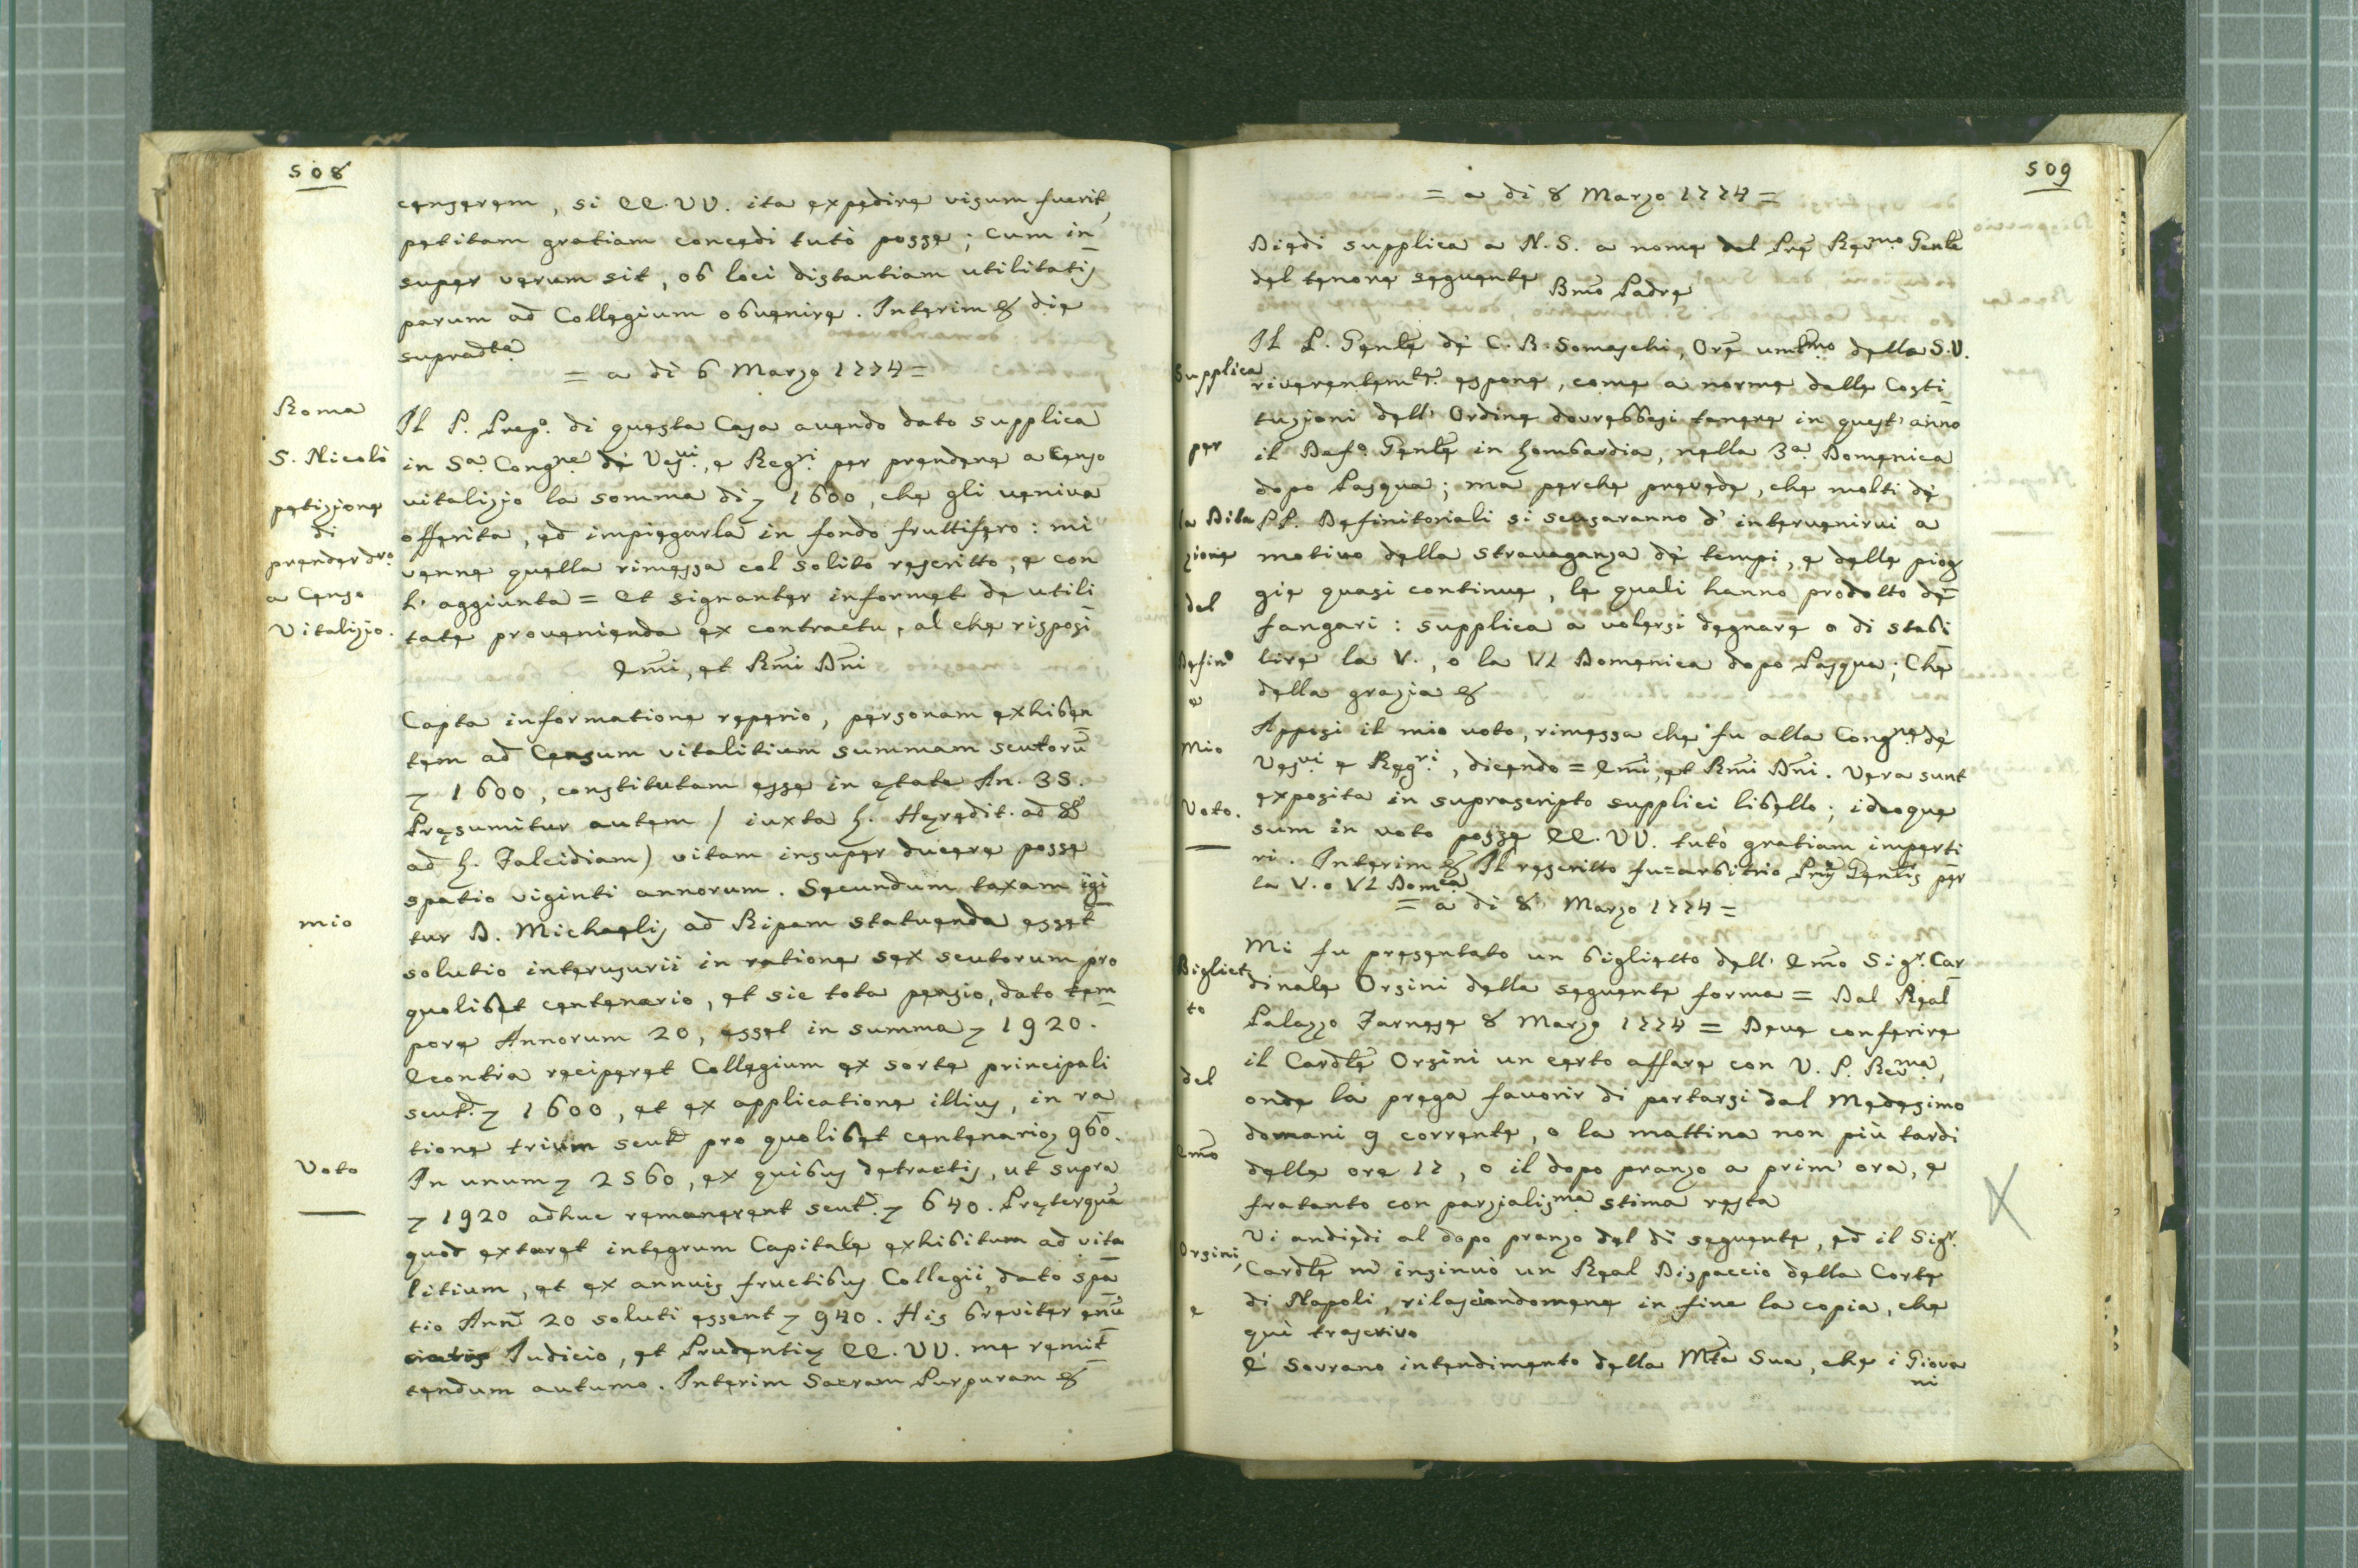 508
censerem, si EE. VV. ita expedire visum fuerit,
petitam gratiam concedi tutò posse; cum in
super verum sit, ob loci distantiam utilitatis
parum ad Collegium obvenire. Interim & die
supradta
= a di 6 Marzo 1774 =
Roma
S. Nicolò
petizione
di
prender dro.
a Censo
Vitalizio.
Il P. Prepo. di questa Casa avendo dato supplica
in Sa. Congne. de' Vesvi., e Regri. per prendere a Censo
vitalizio la somma di 1600, che gli veniva
offerita, ed impiegarla in fondo fruttifero: mi
venne quella rimessa col solito rescritto, e con
l' aggiunta = Et signanter informet de utili
tate provenienda ex contractu, al che risposi
Emi, et Rmi Dni
mio
Voto
Capta informatione reperio, personam exhiben
tem ad Censum vitalitium summam scutorũ
1600, constitutam esse in etate An. 35.
Presumitur autem / iuxta L. Heredit. ad §
ad L. Falcidiam) vitam insuper ducere posse
spatio viginti annorum. Secundum taxam igi
tur D. Michaelis ad Ripam statuenda esset
solutio interusurii in ratione sex scutorum pro
quolibet centenario, et sic tota pensio, dato tem
pore Annorum 20, esset in summa 1920.
Econtra reciperet Collegium ex sorte principali
scut. 1600, et ex applicatione illius, in ra
tione trium scut. pro quolibet centenario 960.
In unum 2560, ex quibus detractis, ut supra
1920 adhuc remanerent scut. 640. Preterquã
quod extaret integrum Capitale exhibitum ad vita
litium, et ex annuis fructibus Collegii, dato spa
tio Ann. 20 soluti essent 940. His breviter enũ
ciatis Judicio, et Prudentie EE. VV. me remit
tendum autumo. Interim Sacram Purpuram &
509
= a di 8 Marzo 1774 =
Diedi supplica a N. S. a nome del Pre Revmo. Genle
del tenore seguente Bmo Padre
Supplica
per
la Dila
zione
del
Defino
e
Mio
Voto.
Il P. Genle de' C. R. Somaschi, Ore umilmo della S. V.
riverentemte. espone, come a norma delle Costi
tuzioni dell' Ordine dovrebbesi tenere in quest' anno
il Defo Genle in Lombardia, nella 3a. Domenica
dopo Pasqua; ma perche prevede, che molti de'
PP. Definitoriali si scusaranno d' intervenirvi a
motivo della stravaganza de' tempi, e delle piog
gie quasi continue, le quali hanno prodotto de'
fangari: supplica a volersi degnare o di stabi
lire la V., o la VI Domenica dopo Pasqua; Che
della grazia &
Apposi il mio voto, rimessa che fu alla Congne. de'
Vesvi e Regri., dicendo = Emi, et Rmi Dni. Vera sunt
exposita in suprascripto supplici libello; ideoque
sum in voto posse EE. VV. tutò gratiam imperti
ri. Interim & Il rescritto fu = arbitrio Pris Genlis per
la V. o VI Domca
= a di 8 Marzo 1774 =
Bigliet
to
del
Emo
Orsini,
e
Mi fu presentato un biglietto dell' Emo Sigr. Car
dinale Orsini della seguente forma = Dal Real
Palazzo Farnese 8 Marzo 1774 = Deve conferire
il Cardle Orsini un certo affare con V. P. Revma,
onde la prega favorir di portarsi dal Medesimo
domani 9 corrente, o la mattina non più tardi
delle ore 17, o il dopo pranzo a prim' ora, e
fratanto con parzialisma. stima resta
Vi andiedi al dopo pranzo del di seguente, ed il Sigr.
Cardle m' insinuò un Real Dispaccio della Corte
di Napoli, rilasciandomene in fine la copia, che
quì trascrivo
E' Sovrano intendimento della Mtà Sua, che i Giova
ni